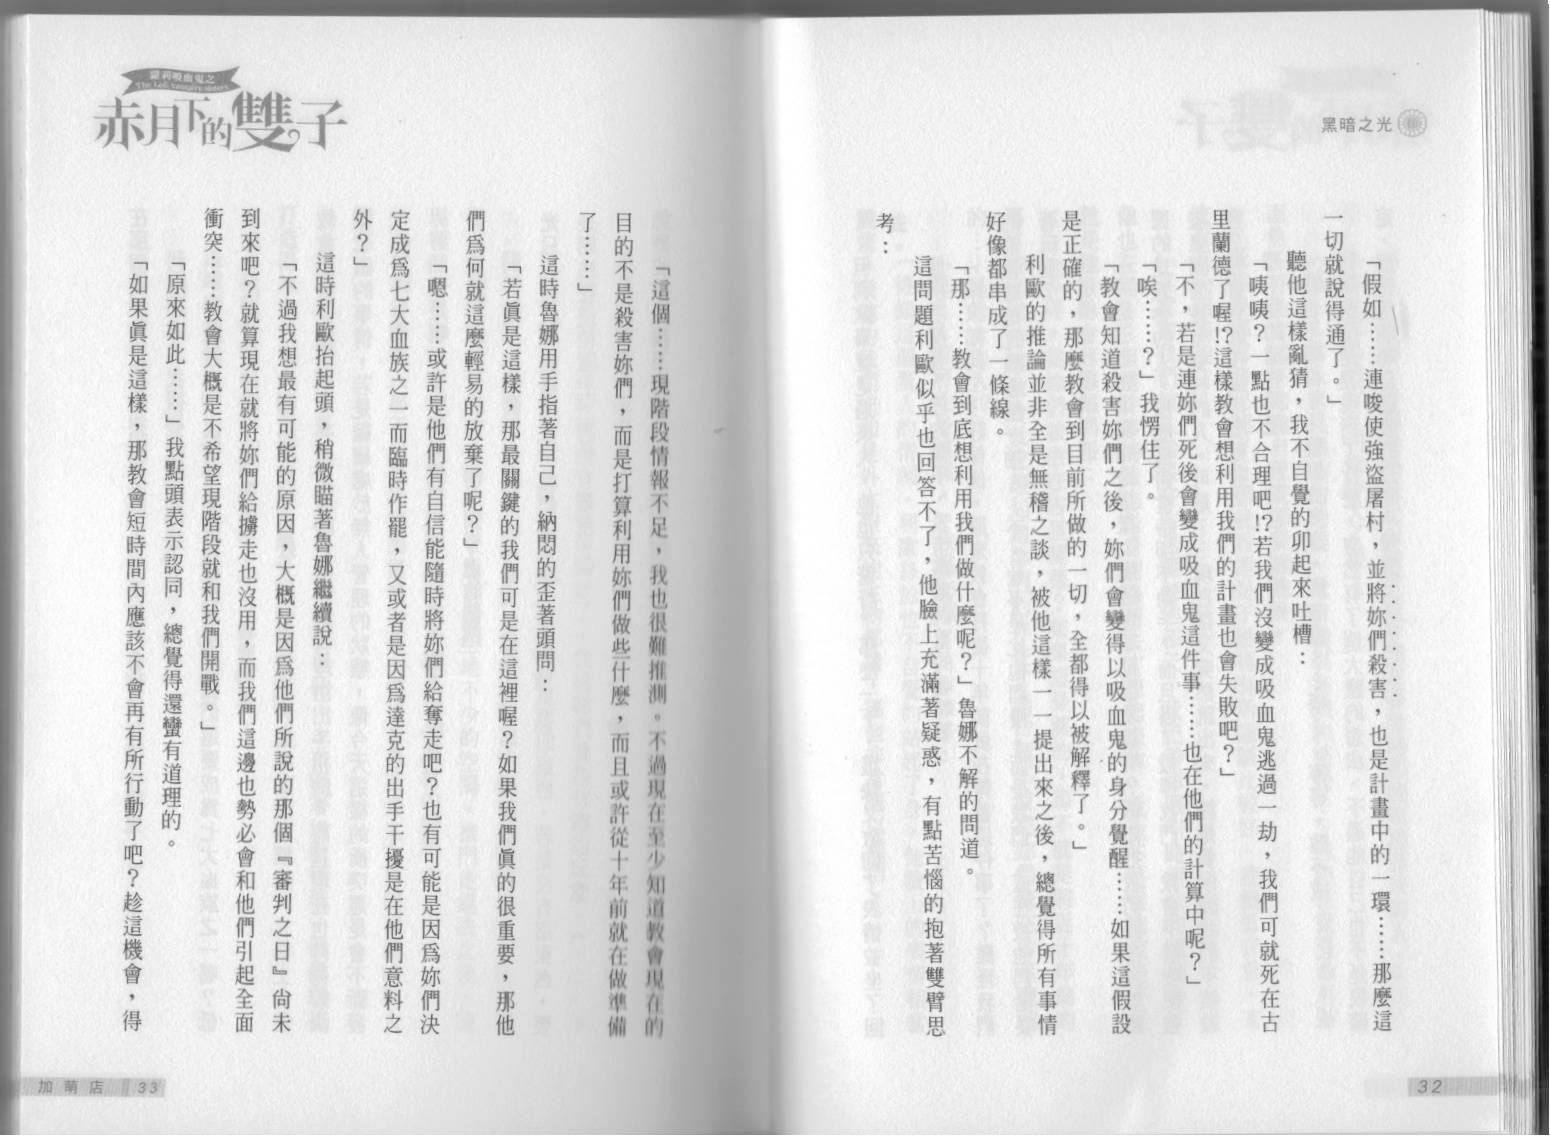 黑暗之光
「假如……連唆使強盜屠村，並將妳們殺害，也是計畫中的一環……那麼這
一切就說得通了。」
聽他這樣亂猜，我不自覺的卯起來吐槽：
「咦咦？一點也不合理吧!?若我們沒變成吸血鬼逃過一劫，我們可就死在古
里蘭德了喔!?這樣教會想利用我們的計畫也會失敗吧？」
「不，若是連妳們死後會變成吸血鬼這件事……也在他們的計算中呢？」
「唉……？」我愣住了。
「教會知道殺害妳們之後，妳們會變得以吸血鬼的身分覺醒……如果這假設
是正確的，那麼教會到目前所做的一切，全都得以被解釋了。」
利歐的推論並非全是無稽之談，被他這樣一一提出來之後，總覺得所有事情
好像都串成了一條線。
「那……教會到底想利用我們做什麼呢？」魯娜不解的問道。
這問題利歐似乎也回答不了，他臉上充滿著疑惑，有點苦惱的抱著雙臂思
考：
32
蘿莉吸血鬼之
The Loli vampire sisters
赤月下的雙子
「這個……現階段情報不足，我也很難推測。不過現在至少知道教會現在的
目的不是殺害妳們，而是打算利用妳們做些什麼，而且或許從十年前就在做準備
了……」
這時魯娜用手指著自己，納悶的歪著頭問：
「若真是這樣，那最關鍵的我們可是在這裡喔？如果我們真的很重要，那他
們為何就這麼輕易的放棄了呢？」
「嗯……或許是他們有自信能隨時將妳們給奪走吧？也有可能是因為妳們決
定成為七大血族之一而臨時作罷，又或者是因為達克的出手干擾是在他們意料之
外？」
這時利歐抬起頭，稍微瞄著魯娜繼續說：
「不過我想最有可能的原因，大概是因為他們所說的那個『審判之日』尚未
到來吧？就算現在就將妳們給擄走也沒用，而我們這邊也勢必會和他們引起全面
衝突……教會大概是不希望現階段就和我們開戰。」
「原來如此……」我點頭表示認同，總覺得還蠻有道理的。
「如果真是這樣，那教會短時間內應該不會再有所行動了吧？趁這機會，得
加萌店 33